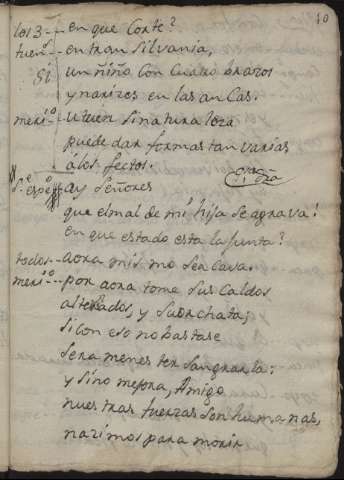 10
los 3 -- en que Corte?
tuenº -- en tran Silvania,
Si un ñiño con cuatro brazos
y narizes en las an Cas.
meriº -- u bien sinatura leza
puede dar formas tan varias
álos fectos.
ay señores
que el mal de mi hija se agrava!
en que estado esta la Junta?
todos -- aora mis mo sea Cava.
meriº -- por aora tome sus Caldos
alterados, y su orchata;
si con eso no bastase
sera menes ter sangrarla:
y sino mejora, Amigo
nues tras fuerzas son humanas,
nazimos para morir